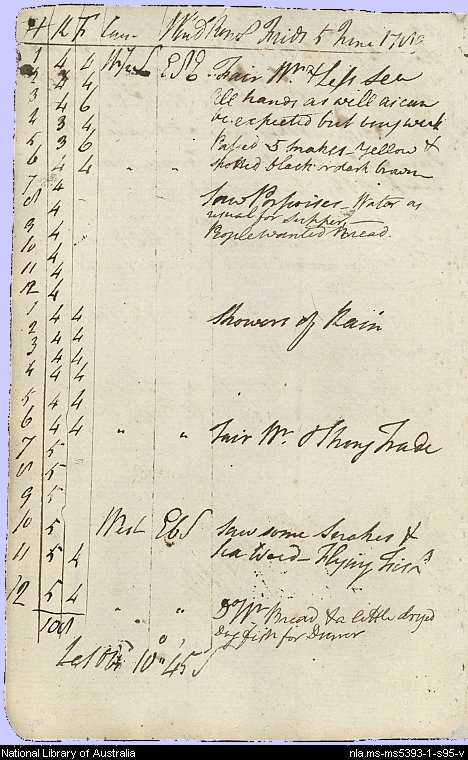 H K F Cour. Wind Remks Frid 5 June 1789
1 4 4 WbS ESE Fair Wr & Less Sea
2 4 4 All hands as well as can
3 4 6 be expected but very weak
4 3 4
5 3 6 Passed 5 snakes yellow &
6 4 4 " " spotted black or dark brown
7 4
8 4 Saw Porpoises - Water as
usual for Supper
9 4 People wanted Bread.
10 4
11 4
12 4
1 4 4 Showers of Rain
2 4 4
3 4 4
4 4 4
5 4 4
6 4 4 " " Fair Wr. & Strong Trade
7 5
8 5
9 5
10 5 West EbS Saw some Snakes &
11 5 4 Sea Weed - Flying Fish
12 5 4 " " Do Wr. Bread & a little dryed
108 Dog fish for Dinner
Lat Obs 10° 45' S
National Library of Australia nla.ms-ms5393-1-s95-v